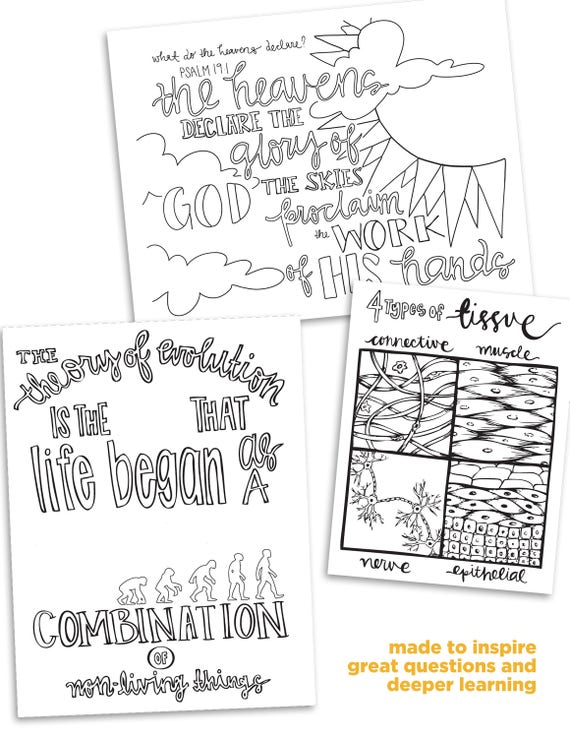 what do the heavens declare?
PSALM 19:1
the heavens
DECLARE THE
glory of
GOD THE SKIES
proclaim
the WORK
of HIS hands
THE
theory of evolution
IS THE THAT
life began as
A
COMBINATION
OF
non-living things
4 Types of tissue
connective muscle
nerve epithelial
made to inspire
great questions and
deeper learning